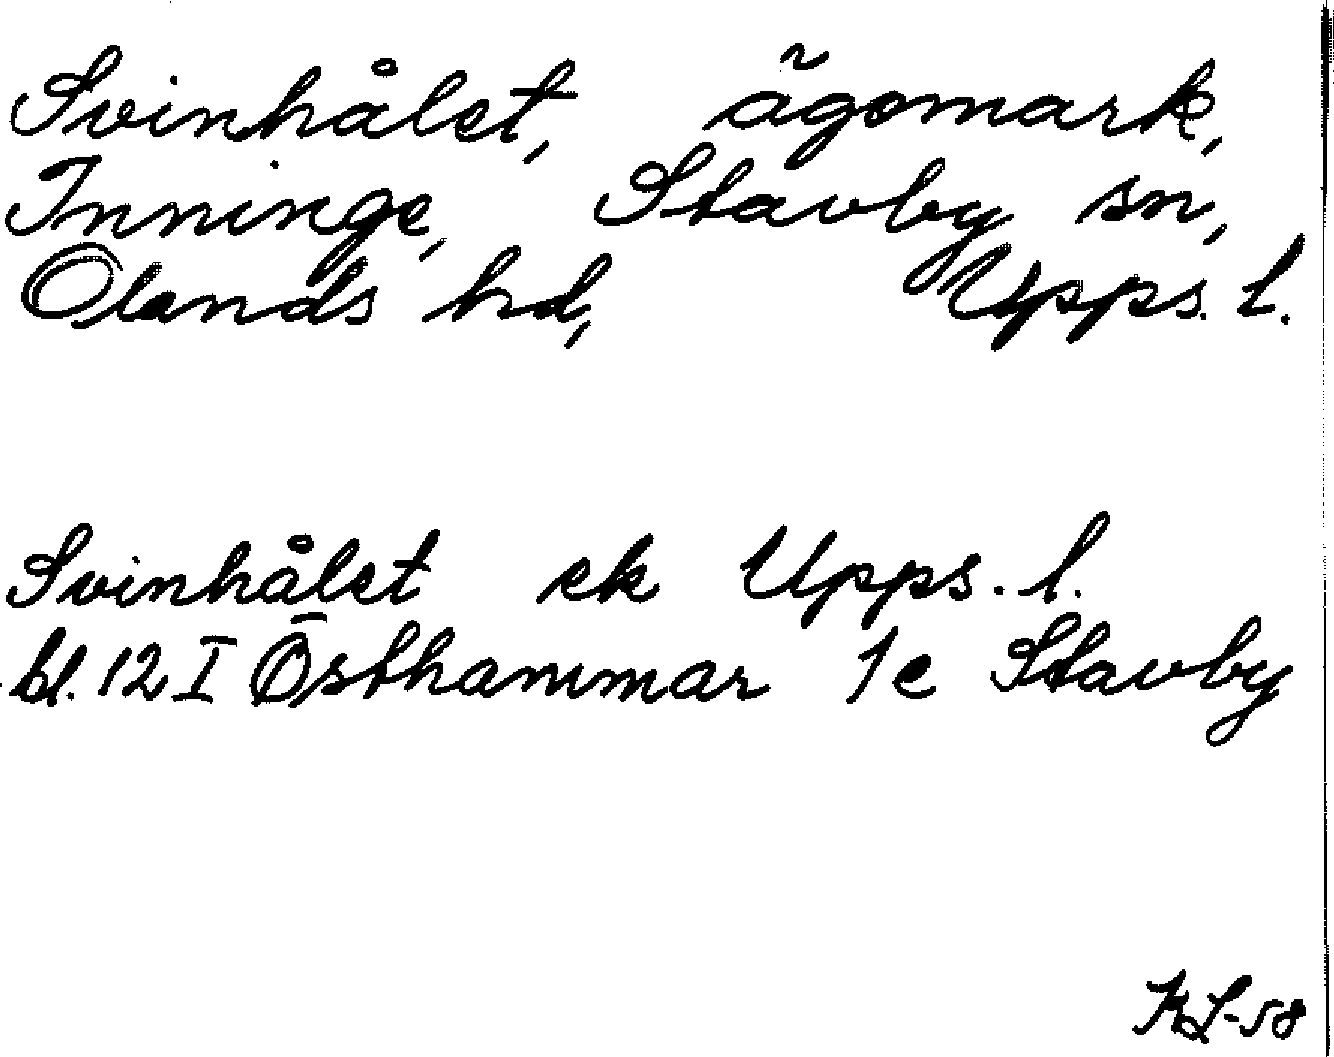 Svinhålet, ägomark,
Inninge, Stavby sn,
Olands hd, Upps. l.
Svinhålet ek Upps. l.
bl. 12 I Östhammar 1e Stavby
KL-58